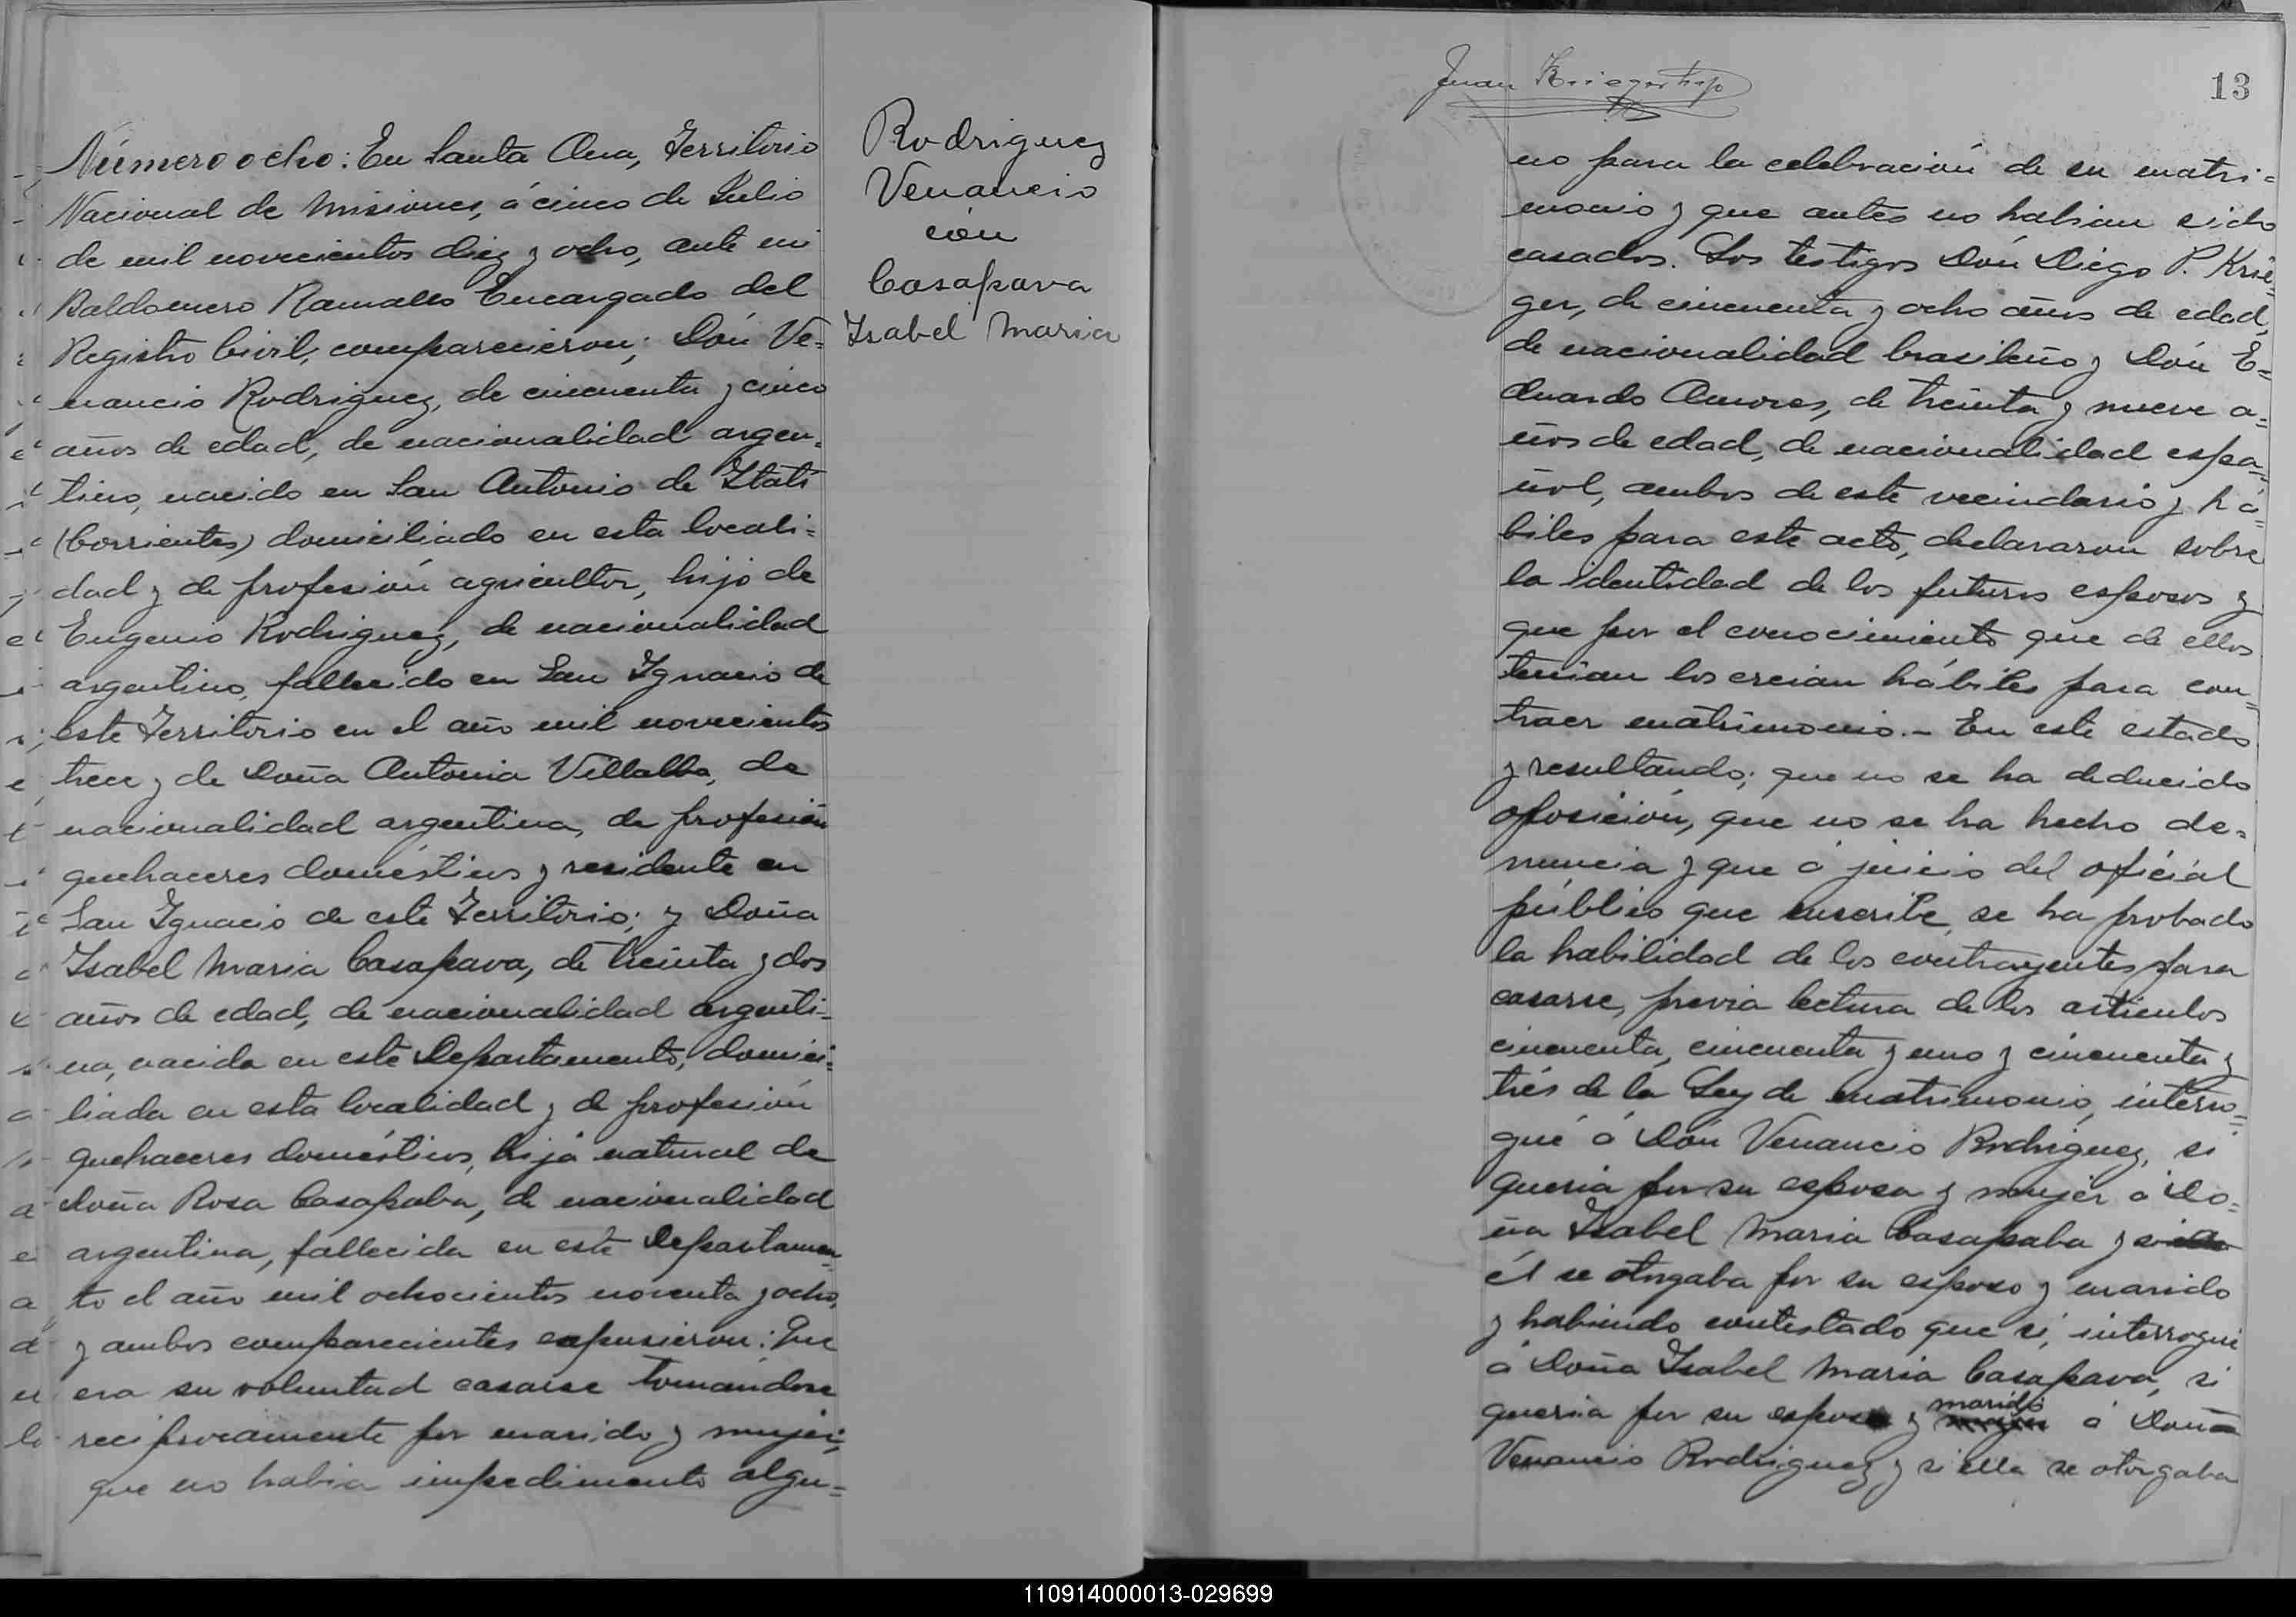 Número ocho: En Santa Ana, Territorio
Nacional de Misiones, á cinco de Julio
de mil novecientos diez y ocho, ante mi
Baldomero Ramallo Encargado del
Registro Civil, comparecieron; Dón Ve=
nancio Rodriguez, de cincuenta y cinco
años de edad, de nacionalidad argen=
tino, nacido en San Antonio de Itatí
(Corrientes) domiciliado en esta locali=
dad y de profesión agricultor, hijo de
Eugenio Rodriguez, de nacionalidad
argentino, fallecido en San Ignacio de
este Territorio en el año mil novecientos
trece y de Doña Antonia Villalba, de
nacionalidad argentina, de profesión
quehaceres domésticos y residente en
San Ignacio de este Territorio; y Doña
Isabel Maria Casapava, de treinta y dos
años de edad, de nacionalidad argenti=
na, nacida en este Departamento, domici=
liada en esta localidad y d profesión
quehaceres domésticos, hija natural de
Doña Rosa Casapaba, de nacionalidad
argentina, fallecida en este Departamen=
to el año mil ochocientos noventa y ocho,
y ambos comparecientes expusieron: Que
era su voluntad casarse tomandose
reciprocamente por marido y mujer,
que no habia impedimento algu=
Rodriguez
Venancio
con
Casapava
Isabel Maria
Juan
13
no para la celebración de su matri=
monio y que antes no habian sido
casados. Los testigos Dón Diego P. Krie=
ger, de cincuenta y ocho años de edad,
de nacionalidad brasileño y Dón E=
duardo Amores, de treinta y nueve a=
ños de edad, de nacionalidad espa=
ñol, ambos de este vecindario y há=
biles para este acto, declararon sobre
la identidad de los futuros esposos y
que por el conocimiento que de ellos
tenian los creian hábiles para con=
traer matrimonio.- En este estado
y resultando; que no se ha deducido
oposición, que no se ha hecho de=
nuncia y que á juicio del oficial
público que suscribe, se ha probado
la habilidad de los contrayentes para
casarse, previa lectura de los articulos
cincuenta, cincuenta y uno y cincuenta y
trés de la Ley de matrimonio, interro=
gué á Dón Venancio Rodriguez, si
queria por su esposa y mujer á Do=
ña Isabel Maria Casapaba y si
él se otorgaba por su esposo y marido
y habiendo contestado que sí, interrogué
á Doña Isabel Maria Casapava, si
queria por su esposo y marido á Don
Venancio Rodriguez y si ella se otorgaba
110914000013-029699